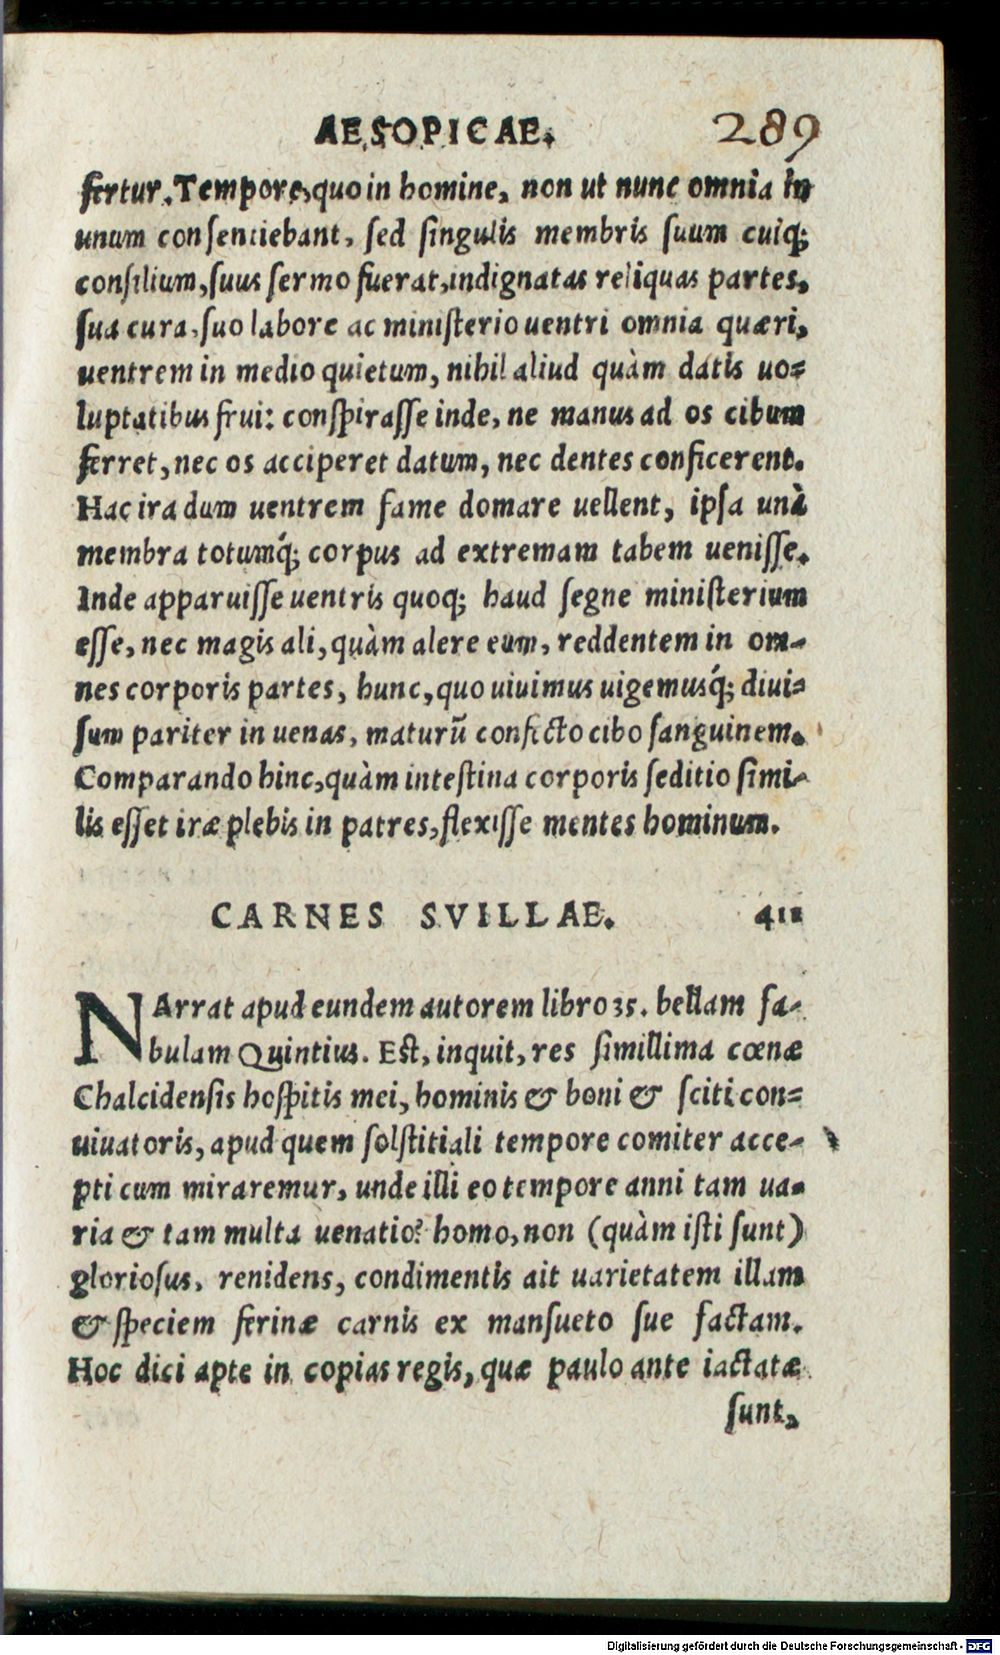 AESOPICAE. 289
fertur. Tempore, quo in homine, non ut nunc omnia in
unum consentiebant, sed singulis membris suum cuiq;
consilium, suus sermo fuerat, indignatas reliquas partes,
sua cura, suo labore ac ministerio uentri omnia quæri,
uentrem in medio quietum, nihil aliud quàm datis uo=
luptatibus frui: conspirasse inde, ne manus ad os cibum
ferret, nec os acciperet datum, nec dentes conficerent.
Hac ira dum uentrem fame domare uellent, ipsa unà
membra totumq́; corpus ad extremam tabem uenisse.
Inde apparuisse uentris quoq; haud segne ministerium
esse, nec magis ali, quàm alere eum, reddentem in om-
nes corporis partes, hunc, quo uiuimus uigemusq́; diui=
sum pariter in uenas, maturū confecto cibo sanguinem.
Comparando hinc, quàm intestina corporis seditio simi-
lis esset iræ plebis in patres, flexisse mentes hominum.
CARNES SVILLAE. 411
NArrat apud eundem autorem libro 35. bellam fa-
bulam Quintius. Est, inquit, res simillima cœnæ
Chalcidensis hospitis mei, hominis & boni & sciti con=
uiuatoris, apud quem solstitiali tempore comiter acce-
pti cum miraremur, unde illi eo tempore anni tam ua-
ria & tam multa uenatio? homo, non (quàm isti sunt)
gloriosus, renidens, condimentis ait uarietatem illam
& speciem ferinæ carnis ex mansueto sue factam.
Hoc dici apte in copias regis, quæ paulo ante iactatæ
sunt,
Digitalisierung gefördert durch die Deutsche Forschungsgemeinschaft - DFG